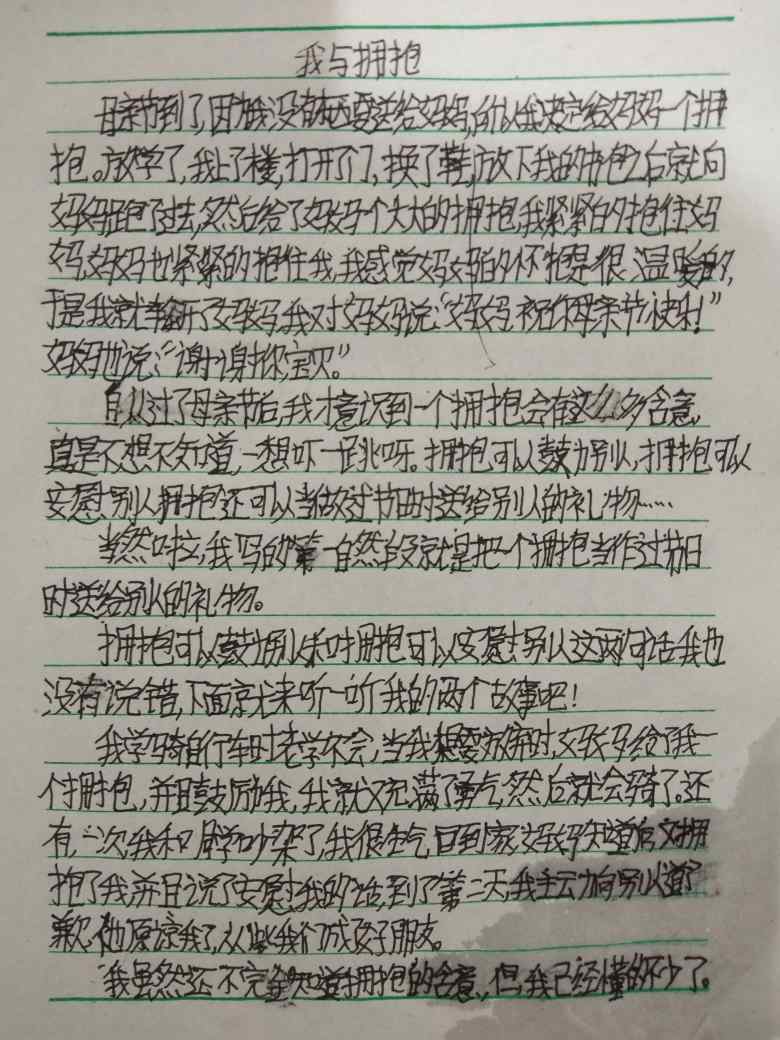 我与拥抱
母亲节到了,因为我没有东西要送给妈妈,所以我决定给妈妈一个拥
抱。放学了,我上了楼,打开了门,换了鞋,放下我的书包之后就向
妈妈跑了过去,然后给了妈妈一个大大的拥抱,我紧紧的抱住妈
妈,妈妈也紧紧的抱住我,我感觉妈妈的怀抱是很温暖的,
于是我就松开了妈妈,我对妈妈说:“妈妈,祝你母亲节快乐!”
妈妈也说:“谢谢你,宝贝。”
自从过了母亲节后,我才意识到一个拥抱会有这么多含意,
真是不想不知道,一想吓一跳呀。拥抱可以鼓励别人,拥抱可以
安慰别人,拥抱还可以当做过节日时送给别人的礼物……
当然啦,我写的第一自然段就是把一个拥抱当作过节日
时送给别人的礼物。
拥抱可以鼓励别人和拥抱可以安慰别人这两句话我也
没有说错,下面就来听一听我的两个故事吧!
我学骑自行车时老学不会,当我想要放弃时,妈妈给了我一
个拥抱,并且鼓励我,我就又充满了勇气,然后就会骑了。还
有一次,我和同学吵架了,我很生气,回到家,妈妈知道后又拥
抱了我,并且说了安慰我的话,到了第二天,我主动向别人道了
歉,他原谅我了,从此我们成了好朋友。
我虽然还不完全知道拥抱的含意,但我已经懂的不少了。